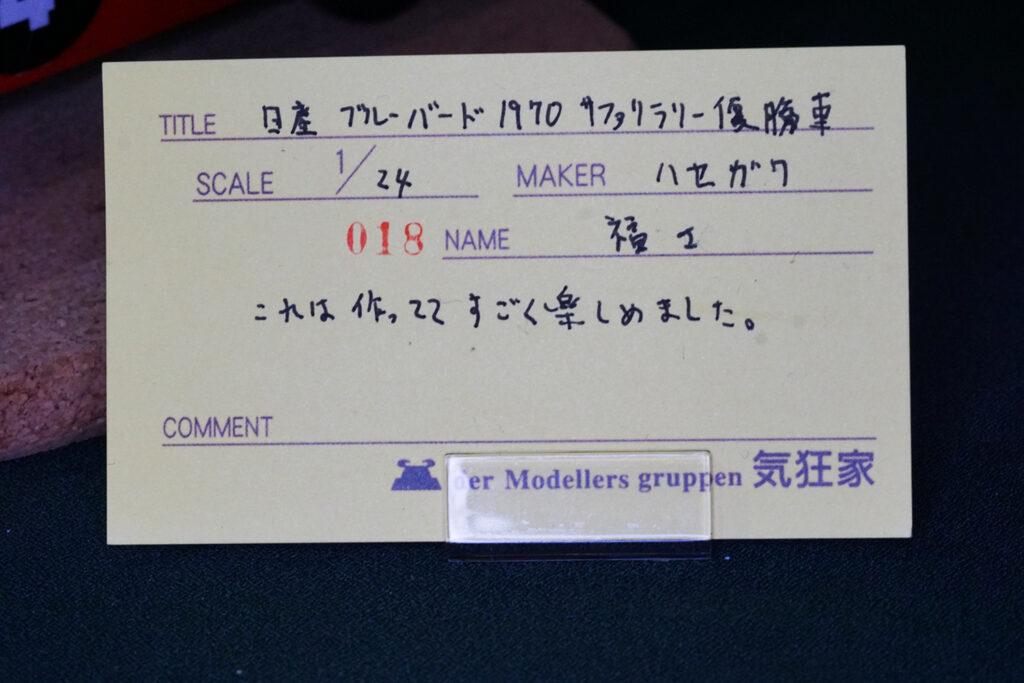 TITLE 日産 ブルーバード 1970 サファリラリー優勝車
SCALE 1/24 MAKER ハセガワ
018 NAME 福工
これは作っててすごく楽しめました。
COMMENT
der Modellers gruppen 気狂家